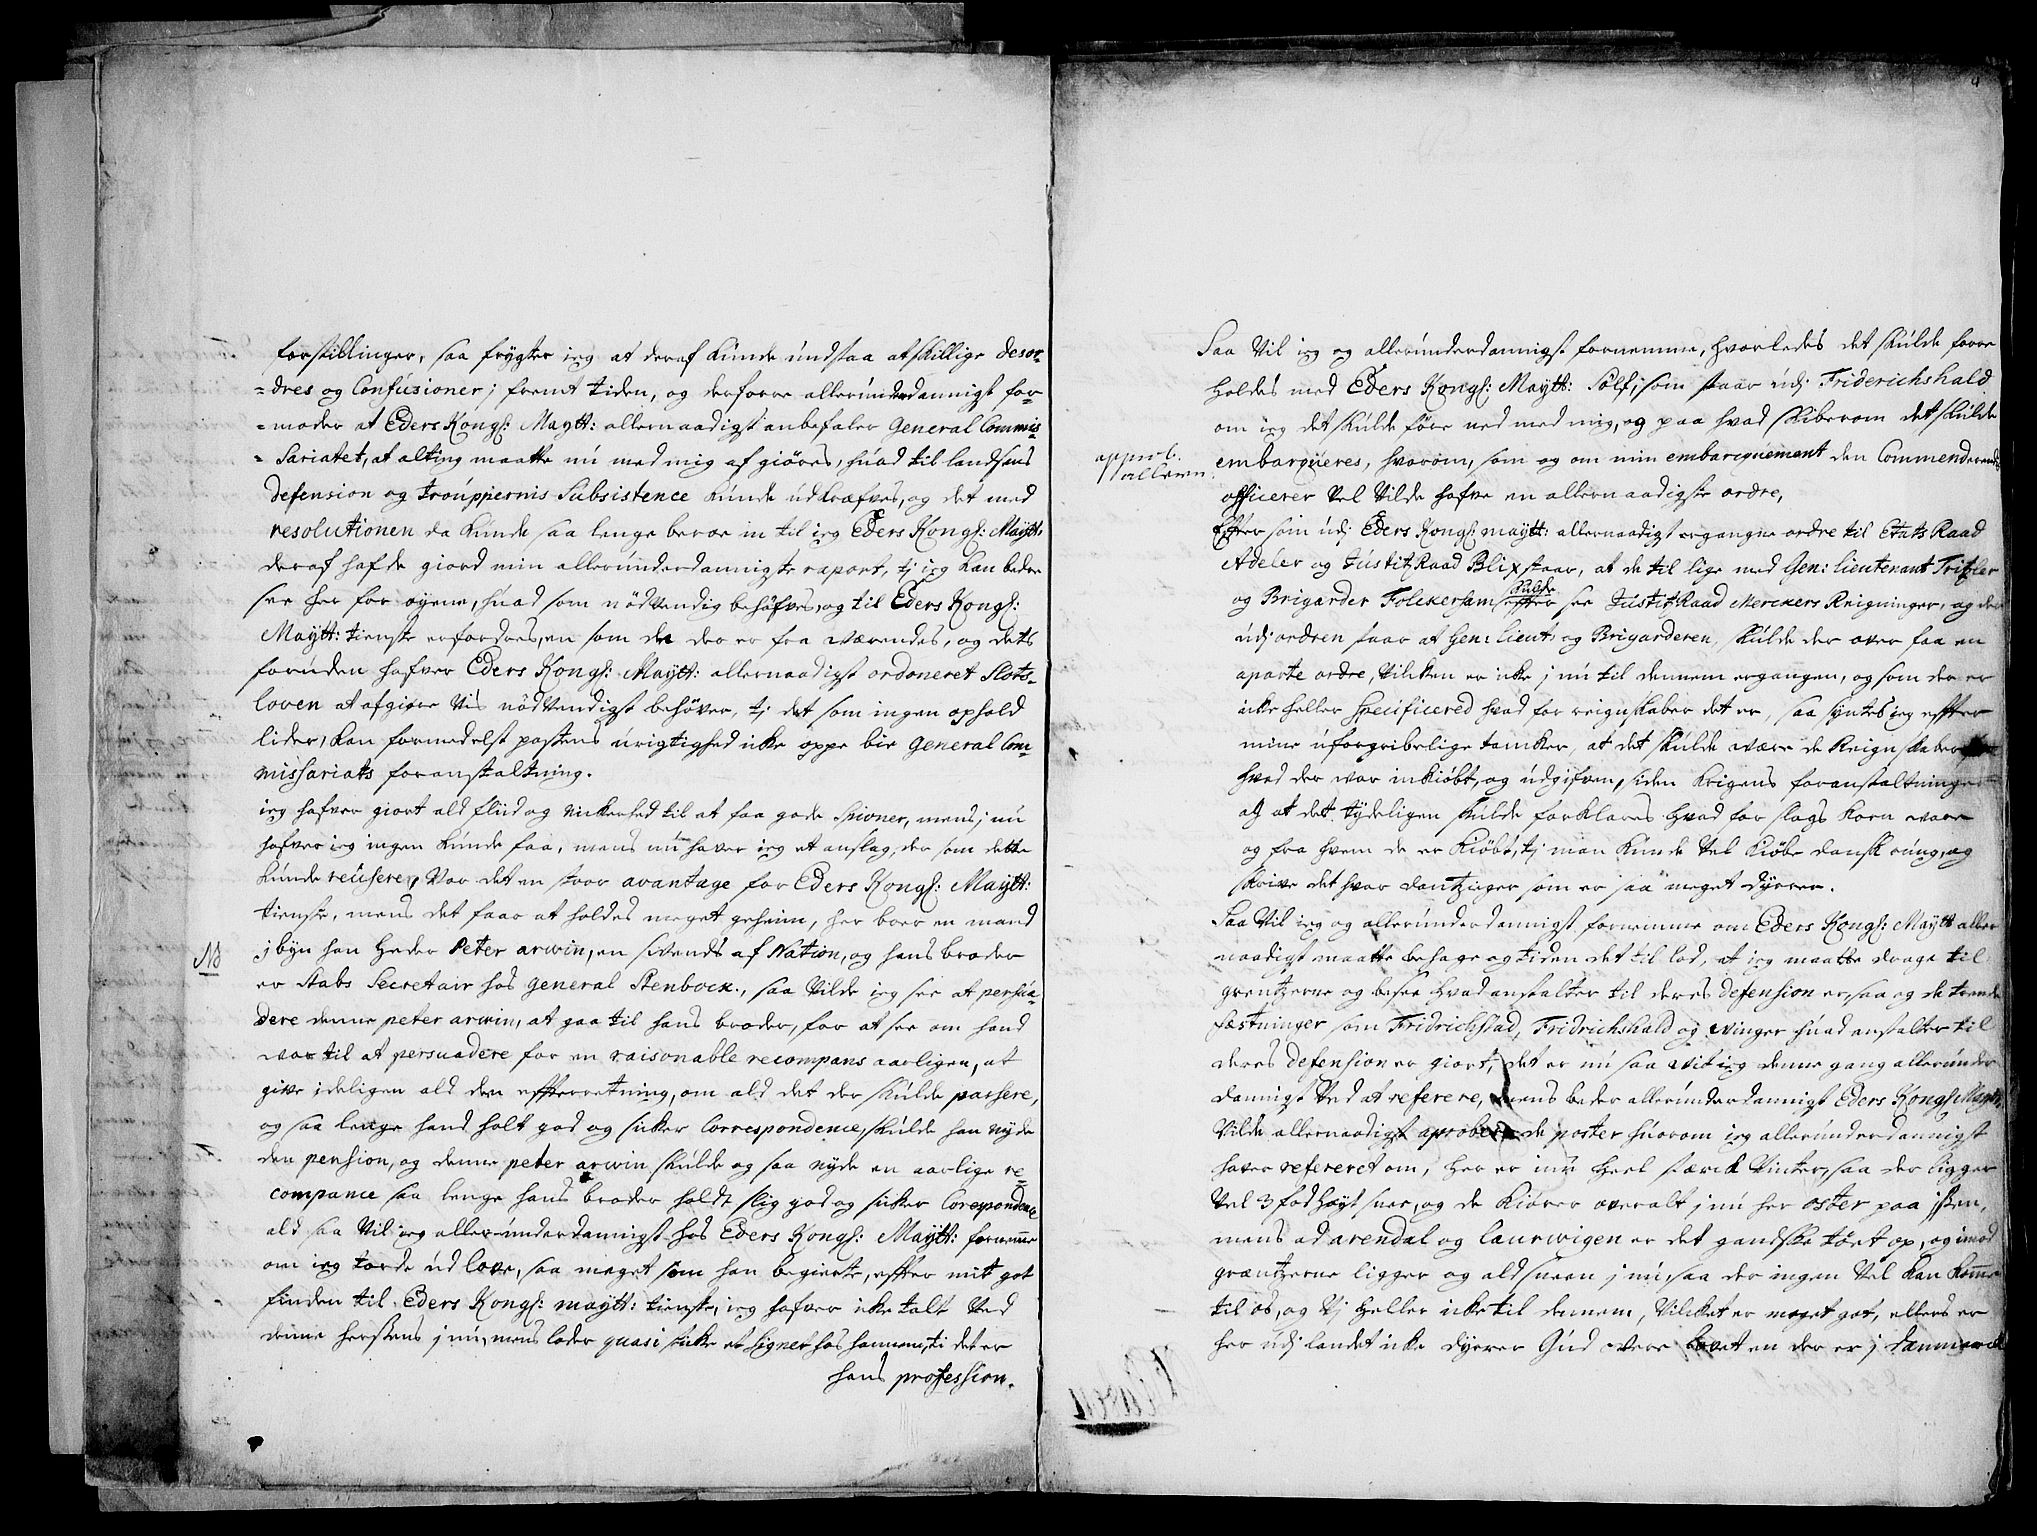 forstillinger, saa frygter ieg at deraf kunde undstaa atskillige desor-
-dres og Confusioner i fremtiden, og derforre allerunderdannigst for-
-moder at Eders Kongl: Maytt: allernaadigst anbefaler General Commis-
-Sariatet, at alting maatte nu med mig af giöres, huad til landsens
defension og trouppernis Subsistence kunde udkræfves, og det med
resolutionen da kunde saa lenge beroe in til ieg Eders Kongl: Maytt:
deraf hafde giord min allerunderdannigste raport, tj ieg kan bedre
see her for øyene, huad som nödvendig behöfves, og til Eders Kongl:
Maytt: tieniste erfordres, en som de der er fra værendes, og dets
foruden hafver Eders Kongl: Maytt: allernaadigst ordoneret Slots-
loven at afgiöre vis nödvendigst behöver, tj det som ingen ophold
lider, kan formedelst postens urigtighed icke oppe bie General Com-
missariats foranstaltning.
ieg hafver giort ald fliid og vickerhed til at faa gode Spioner, mens j nu
hafver ieg ingen kunde faa, mens nu haver ieg et anslag, der som dette
kunde reüsere, var det en stoor avantage for Eders Kongl: Maytt:
tieniste, mens det faar at holdes meget geheim, her boer en mand
NB
j byen han heder Peter arwin, en svensk af Nation, og hans broder
er Stabs Secretair hos General Stenbock, saa vilde ieg see at persua
dere denne peter arwin, at gaa til hans broder, for at see om hand
var til at persuadere for en raisonable recompans aarligen, at
give ideligen ald den effterretning, om ald det der skulde passere,
og saa lenge hand holt god og sicker Correspondence, skulde han nyde
den pension, og denne peter arwin skulde og saa nyde en aarlige re-
compance saa lenge hans broder holdt slig god og sicker Corespondence
ald saa vil ieg allerunderdannigst hos Eders Kongl: Maytt: fornemme
om ieg torde ud love, saa meget som han begierte, effter mit got
finden til Eders Kongl: maytt: tieniste, ieg hafver icke talt ved
denne herssens j nu, mens lader quasi stikke et Signet hos hannem, ti det er
hans profession.
Saa vil ieg og allerunderdannigst fornemme, hvorledes det skulde forre
holdes med Eders Kongl: Maytt: Sölf, som staar udj Friderichshald
om ieg det skulde före ned med mig, og paa hvad skiberom det skulde
approb.
allern.
embarqueres, hvorom, som og om min embarquement den Commenderende
officerer vel vilde hafve en allernaadigste ordre,
Effter som udj Eders Kongl: maytt: allernaadigst ergangne ordre til Etats Raad
Adeler og Justitz Raad Blix staar, at de til lige med Gen: lieutenant Tritzler
skulde
og Brigarder Folckersam effter see Justitz Raad Merckers Reigninger, og der
udj ordren staar at Gen: lieut: og Brigarderen, skulde der over faa en
aparte ordre, vilcken er icke j nu til dennem ergangen, og som der er
icke heller Specificered hvad for reignskaber det er, saa syntes ieg effter
mine uforgribelige tancker, at det skulde være de Reignskaber
hvad der var inkiöbt, og udgifven, siden Krigens foranstaltninger
og at det tydeligen skulde forklares hvad for slags Korn vare
og fra hvem de er Kiöbt, tj man kunde vel kiöbe dansk rung, og
skrive det hvar dantziger som er saa meget dyrere.
Saa vil ieg og allerunderdannigst fornemme om Eders Kongl: Maytt aller
naadigst maatte behage og tiden det til lod, at ieg maatte drage til
grentzerne og besee hvad anstalter til deres defension er, saa og de trende
fæstninger som Fridrichstad, Fridrichshald og Winger huad anstalter til
deres defension er giort, det er nu saa vit ieg denne gang allerunder
dannigst ved at referere, mens beder allerunderdannigst Eders Kongl: Maytt:
vilde allernaadigst aprobere de poster huorom ieg allerunderdannigst
haver refereret om, her er inu heel stærck vinter, saa der ligger
vel 3 fod høyt snee, og de kiörer overalt j nu her öster paa issen,
mens ad arendal og laurwigen er det gandske tört op, og imod
græntzerne ligger og ald sneen j nu, saa der ingen vel kan komme
til os, og vj heller icke til dennem, vilcket er meget got, ellers er
her udj landet icke dyrere Gud være lovet en der er j danmarck